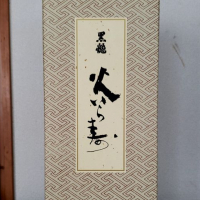 黒龍
火いら寿